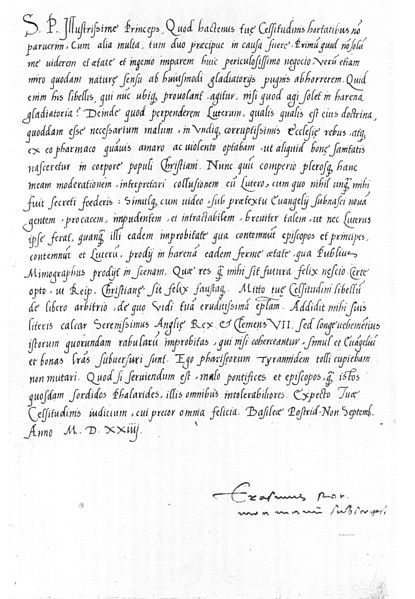 S. P. Illustrissime Princeps. Quod hactenus tuę Celsitudinis hortatibus nō
paruerim, Cum alia multa, tum duo pręcipue in causa fuere. Primū quod nō solū
me viderem et ætate et ingenio imparem huic periculosissimo negocio. Verū etiam
miro quodam naturę sensu ab huiusmodi gladiatorijs pugnis abhorrerem. Quid
enim his libellis, qui nūc ubiq; prouolant, agitur, nisi quod agi solet in harena
gladiatoria? Deinde quod perpenderem Luterum, qualis qualis est eius doctrina,
quoddam esse necessarium malum, in undiq; corruptissimis Ecclesię rebus. atq;
ex eo pharmaco quāuis amaro ac violento optabam, ut aliquid bonę sanitatis
nasceretur in corpore populi Christiani. Nunc quū comperio plerosq; hanc
meam moderationem, interpretari collusionem cū Lutero, cum quo nihil unq̄ mihi
fuit secreti foederis: Simulq; cum video, sub prætextu Euangelij subnasci nouā
gentem, procacem, impudentem, et intractabilem, breuiter talem, ut nec Luterus
ipse ferat, quanq̄ illi eadem improbitate qua contemnūt episcopos et principes,
contemnūt et Luterū, prodij in harenā eadem ferme ætate qua Publius
Mimographus prodijt in scenam. Quæ res q̄ mihi sit futura felix nescio. Certe
opto, ut Reip. Christianę sit felix faustaq;. Mitto tuę Celsitudini libellū
de libero arbitrio, de quo vidi tuā eruditissimā eplam. Addidit mihi suis
literis calcar Serenissimus Anglię Rex & Clemens VII. sed longe vehemētius
istorum quorundam rabularū improbitas, qui nisi coherceantur, simul et Euāgeliū
et bonas lrās subuersuri sunt. Ego pharisęorum tyrannidem tolli cupiebam
non mutari. Quod si seruiendum est, malo pontifices et episcopos, q̄ istos
quosdam sordidos Phalarides, illis omnibus intolerabiliores. Expecto Tuæ
Celsitudinis iudicium, cui precor omnia felicia. Basileæ Postrid. Non Septemb.
Anno M. D. XXIIIJ.
Erasmus Rot.
mea manu subscripsi